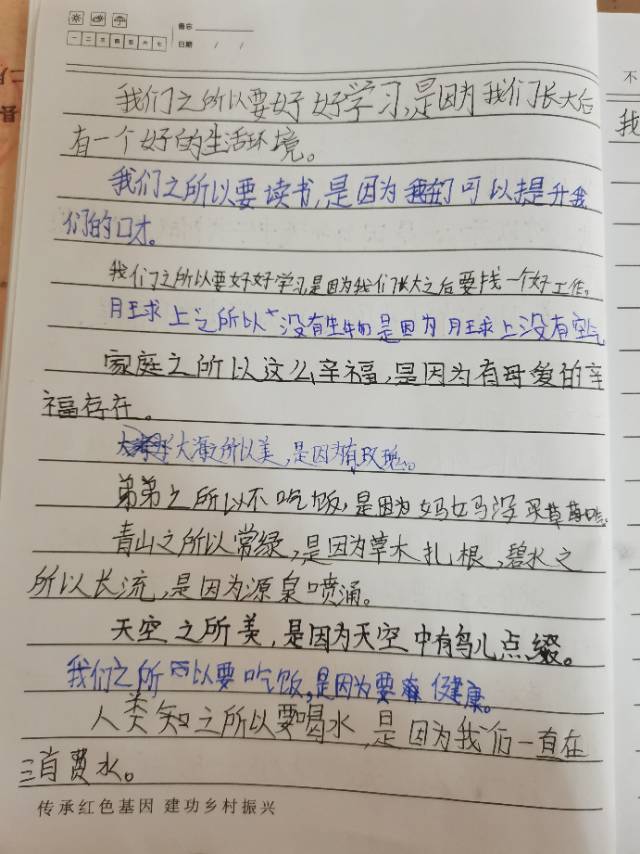 备忘
日期 / /
一 二 三 四 五 六 七
不
我们之所以要好好学习,是因为我们长大后
我
有一个好的生活环境。
我们之所以要读书,是因为我们可以提升我
们的口才。
我们之所以要好好学习是因为我们长大之后要找一个好工作。
月球上之所以没有生物是因为月球上没有空气
家庭之所以这么辛福,是因为有母爱的辛
福存在。
大海之所以美,是因为有玫瑰。
弟弟之所以不吃饭,是因为妈妈没买草莓
青山之所以常绿,是因为草木扎根,碧水之
所以长流,是因为源泉喷涌。
天空之所美,是因为天空中有鸟儿点缀。
我们之所以要吃饭,是因为要健康。
人类知之所以要喝水,是因为我们一直在
消费水。
传承红色基因 建功乡村振兴